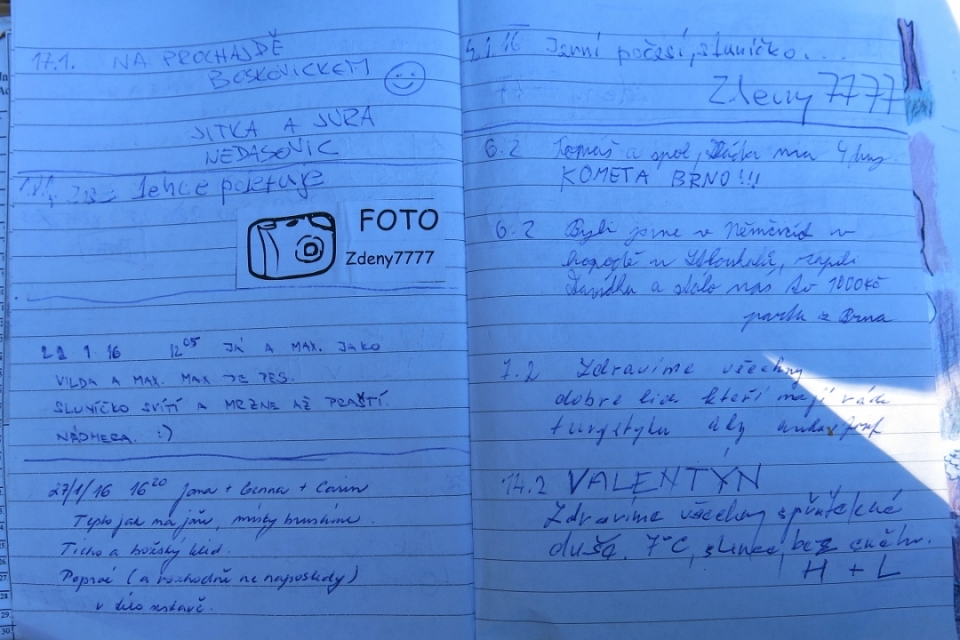 17.1. NA PROCHAJDĚ
BOSKOVICKEM
JITKA A JURA
NEDASOVIC
lehce poletuje
FOTO
Zdeny7777
22 1.16 12 05 JÁ A MAX. JAKO
VILDA A MAX. MAX JE PES.
SLUNÍČKO SVÍTÍ A MRZNE AŽ PRAŠTÍ.
NÁDHERA. :)
27/1/16 16 20 Jana + + Carin
Teplo jak na jaře, místy
Ticho a božský klid.
Poprvé (a rozhodně ne naposledy)
v
5.1.16 Jarní počasí, sluníčko...
Zdeny7777
6.2 Tomáš a spol,
KOMETA BRNO!!!
6.2 Byli jsme v Němčicích v
hospodě u
a stálo nás to 1000Kč
parta z Brna
7.2 Zdravíme všechny
dobré lidi kteří mají rádi
turystyku
14.2 VALENTÝN
Zdravíme všechny spřátelené
duše. 7°C, slunce, bez sněhu.
H + L